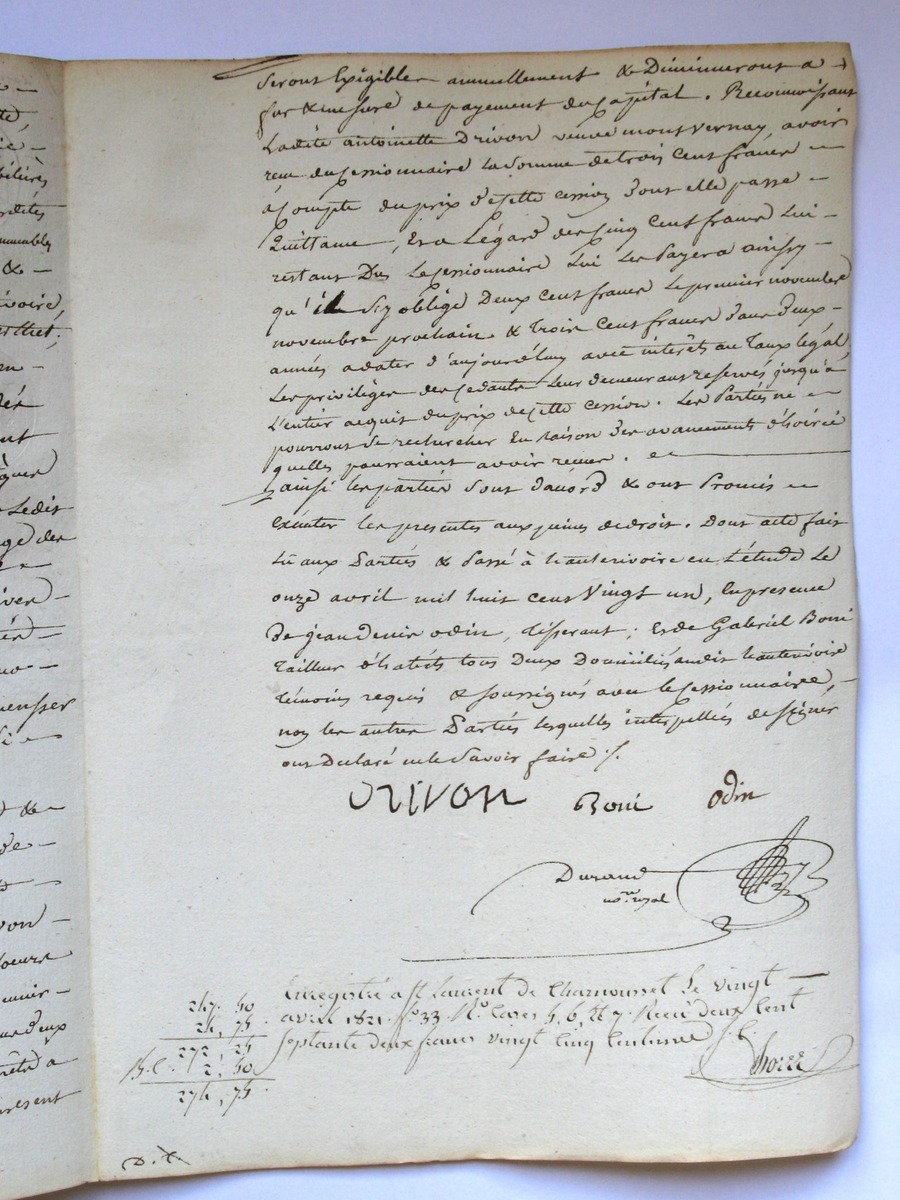 te,
bilières
rdites
immeubles
& -
ivoire,
dit
ge des
penser
present
Seront Exigibles annuellement & Diminueront a
fur & mesure de payement du Capital. Reconnaissant
Ladite antoinette Drivon veuve mont Vernay, avoir
reçu du Cessionnaire La Somme de trois Cent francs
acompte du prix de Cette cession dont elle passe
Quittance, Et a L'égard des Cinq Cent francs Lui
restant Dus Le Cessionnaire Lui Les Payera ainssy
qu'il S'y oblige Deux cent francs Le premier novembre
novembre prochain & trois Cent francs dans deux
années a dater d'aujourd'huy avec intérêts au Taux légal,
Les privilèges des Cedants Leur demeurans reservés jusqu'à
L'entier acquit du prix de Cette cession. Les Parties ne
pourront Se rechercher En raison des avancements d'hoirie
quelles pourraient avoir reçues.
ainsi les parties Sont d'accord & ont Promis
Executer les presentes aux peines de droit. Dont acte fait
Lû aux Parties & Passé à hauterivoire en L'étude Le
onze avril mil huit cent Vingt un, En presence
de jean denis odin, tisserant; Et de Gabriel Boiri
tailleur d'habits tous Deux Domiciliés audit hauterivoire
temoins requis & soussignés avec le Cessionnaire,
non les autres Parties lesquelles interpellées de signer
ont Declaré ne le Savoir faire ./.
Drivon Boiri Odin
Durand
nore. royal
Enregistré a St. Laurent de Chamousset le vingt
avril 1821. fo. 33. Ro. Cases 5, 6 et 7. Recu deux cent
septante deux francs vingt cinq centimes
247. 50
24, 75
272, 25
2, 50
274, 75